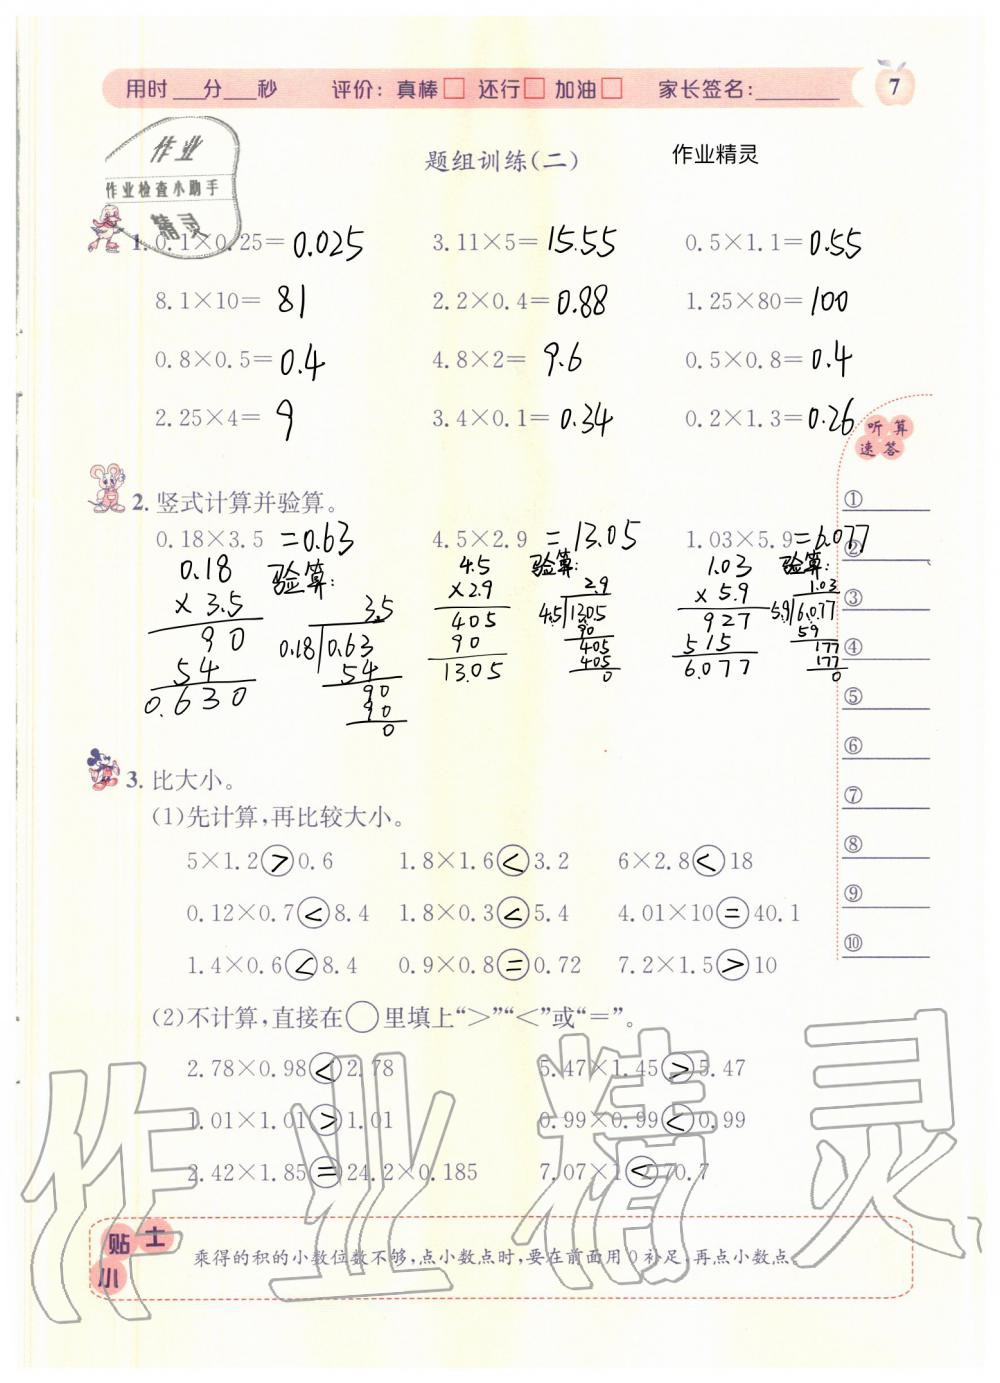 用时___分___秒 评价：真棒□ 还行□ 加油□ 家长签名：______ 7
作业
作业检查小助手
精灵
题组训练(二) 作业精灵
1. 0.1×0.25= 0.025 3.11×5= 15.55 0.5×1.1= 0.55
8.1×10= 81 2.2×0.4= 0.88 1.25×80= 100
0.8×0.5= 0.4 4.8×2= 9.6 0.5×0.8= 0.4
2.25×4= 9 3.4×0.1= 0.34 0.2×1.3= 0.26
听算
速答
2. 竖式计算并验算。
0.18×3.5 =0.63 4.5×2.9 =13.05 1.03×5.9 =6.077
0.18 验算： 4.5 验算： 1.03 验算：
×3.5 3.5 ×2.9 2.9 ×5.9 1.03
90 0.18 0.63 405 4.5 13.05 927 5.9 6.077
54 54 90 90 515 59
0.630 90 13.05 405 6.077 177
90 405 177
0 0 0
①
②
③
④
⑤
⑥
⑦
⑧
⑨
⑩
3. 比大小。
(1)先计算，再比较大小。
5×1.2>0.6 1.8×1.6<3.2 6×2.8<18
0.12×0.7<8.4 1.8×0.3<5.4 4.01×10=40.1
1.4×0.6<8.4 0.9×0.8=0.72 7.2×1.5>10
(2)不计算，直接在○里填上“>”“<”或“=”。
2.78×0.98<2.78 5.47×1.45>5.47
1.01×1.01>1.01 0.99×0.99<0.99
2.42×1.85=24.2×0.185 7.07×1<70.7
作业精灵
小贴士
乘得的积的小数位数不够，点小数点时，要在前面用0补足，再点小数点。